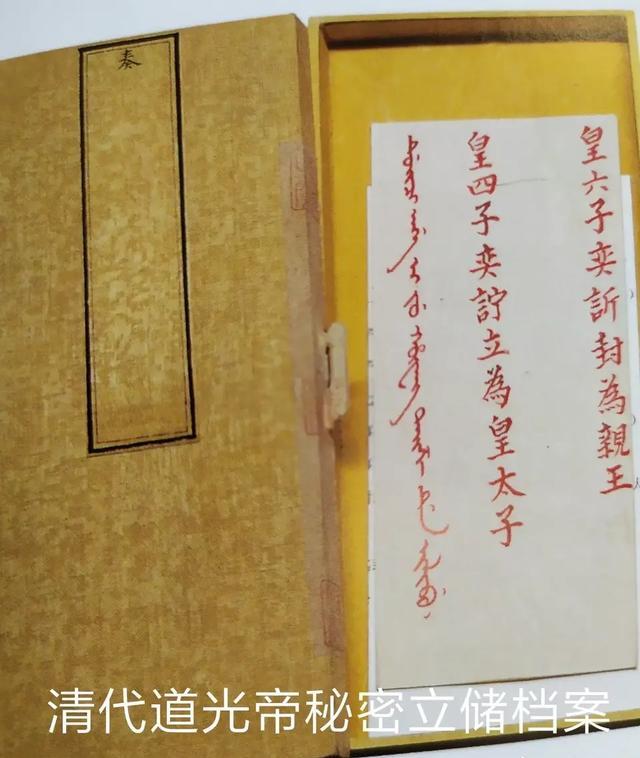 奏
皇六子奕訢封為親王
皇四子奕詝立為皇太子
清代道光帝秘密立储档案